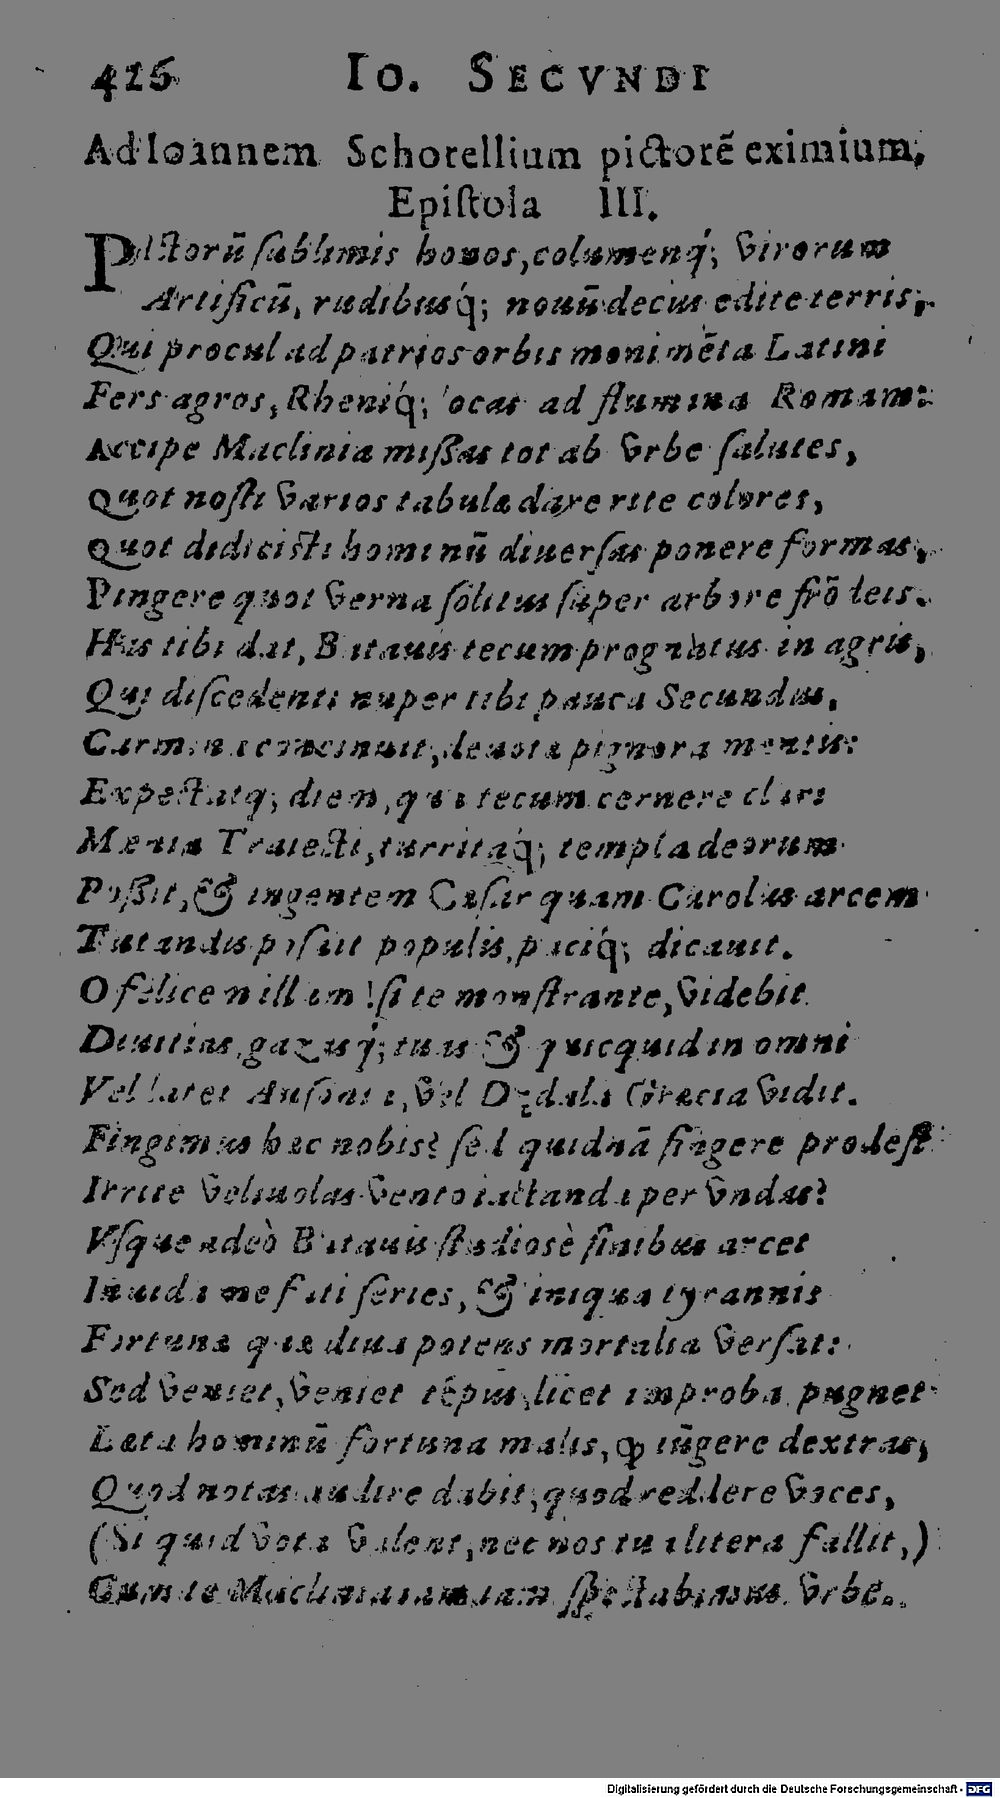 426 IO. SECVNDI
Ad Ioannem Schorellium pictorẽ eximium,
Epiſtola III.
Pictorũ ſublimis honos, columenq́; virorum
Artificũ, rudibusq́; nouũ decus edite terris,
Qui procul ad patrios orbis monimẽta Latini
Fers agros, Rheniq́; vocas ad flumina Romam:
Accipe Maclinia miſſas tot ab vrbe ſalutes,
Quot noſti varios tabulæ dare rite colores,
Quot didiciſti hominũ diuerſas ponere formas,
Pingere quot verna ſolitus ſuper arbore frõdeis.
Has tibi dat, Batauis tecum prognatus in agris,
Qui diſcedenti nuper tibi pauca Secundus,
Carmina concinuit, deuotæ pignora mentis:
Expectatq; diem, qua tecum cernere clari
Mœnia Traiecti, turritaq́; templa deorum
Poſſit, & ingentem Cæſar quam Carolus arcem
Tutandis poſuit populis, paciq́; dicauit.
O felicem illum! ſi te monſtrante, videbit
Diuitias, gazasq́; tuas & quicquid in omni
Vel latet Auſonia, vel Dædala Græcia vidit.
Fingimus hæc nobis? ſed quidnã fingere prodeſt
Irrita veliuolas vento iactanda per vndas?
Vſque adeò Batauis ſtudioſè finibus arcet
Inuida me fati ſeries, & iniqua tyrannis
Fortunæ quæ diua potens mortalia verſat:
Sed veniet, veniet tẽpus, licet improba pugnet
Læta hominũ fortuna malis, ꝙ iũgere dextras,
Quod notas audire dabit, quod reddere voces,
(Si quid vota valent, nec nos tua litera fallit,)
Cum te Macliniana iam ſpectabimus vrbe.
Digitalisierung gefördert durch die Deutsche Forschungsgemeinschaft - DFG